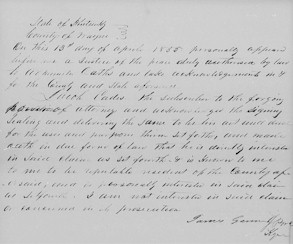 State of Kentucky
County of Wayne
On this 13th day of April 1855 personally appeared
before me a Justice of the peace duly authorized by law
to and take acknowledgements in &
for the County and State aforesaid
Jacob the subscriber to the forgoing
power of attorney and acknowledged the Signing
Sealing and delivering the same to be his act and deed
for the use and purpose therein set forth, and made
oath in due form of law that he is directly interested
in said claim as set forth & is known to me
to me to be reputable resident of the County afore
said, and is personally interested in said claim
as set forth. I am not interested in said claim
or concerned in its prosecution
James